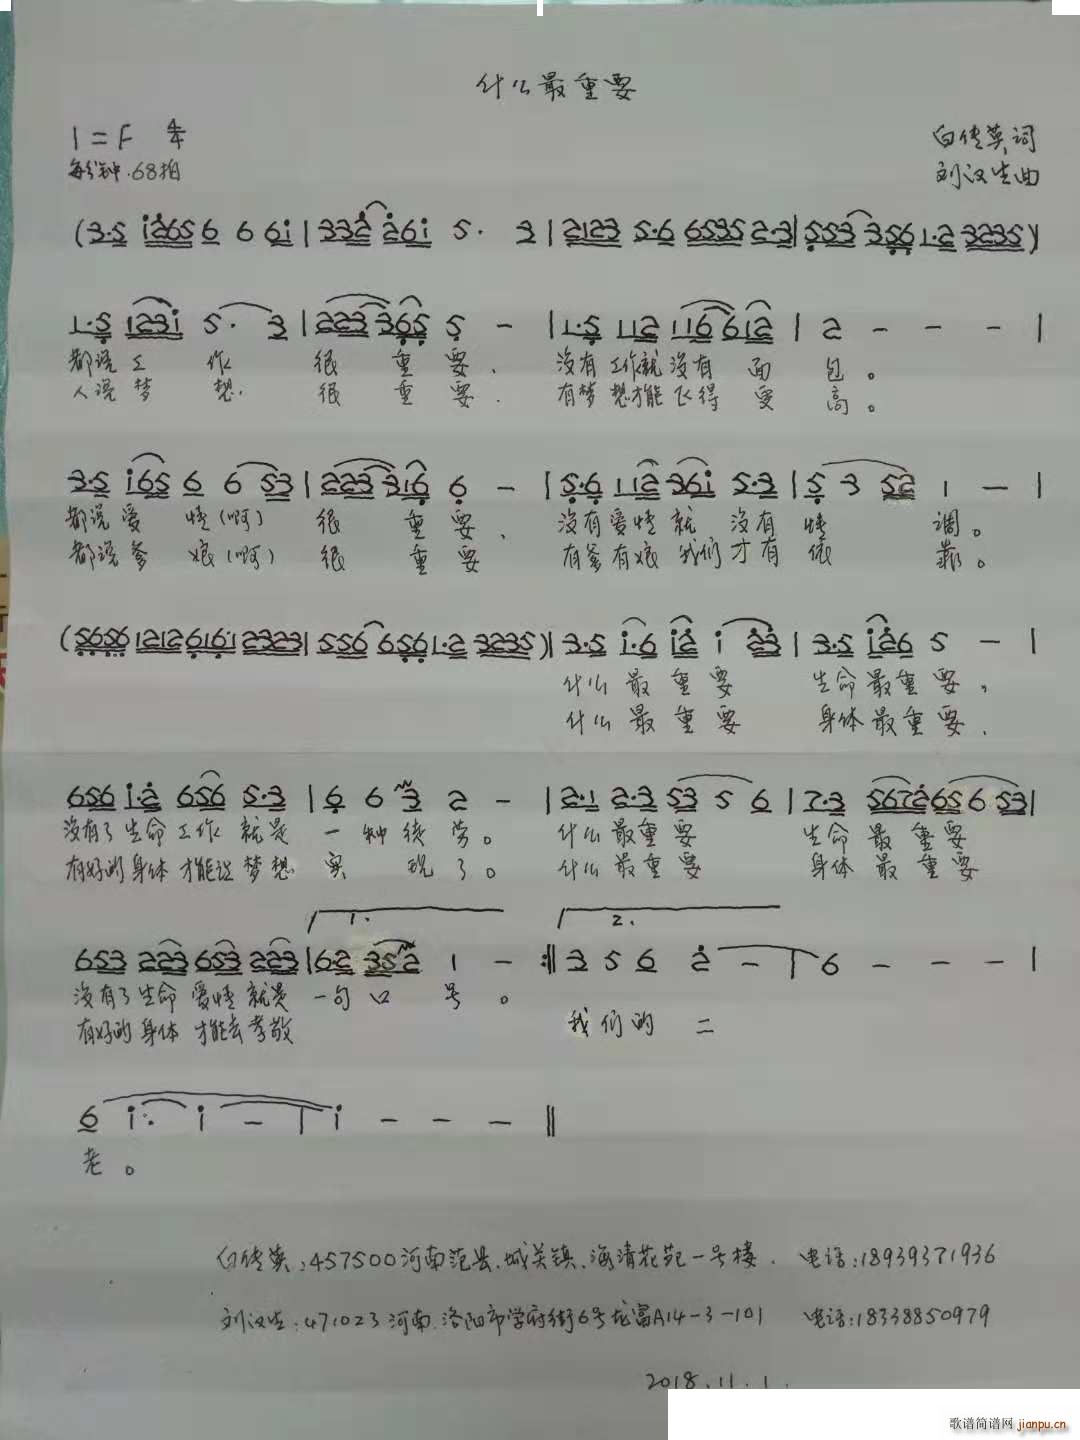 什么最重要
1=F 4/4
白传英词
每分钟.68拍
刘汉生曲
(3·5 i265 6 6 6i | 332 26i 5· 3 | 2123 5·6 6535 2·3 | 553 356 1·2 3235)
1·5 123i 5· 3 | 223 365 5 — | 1·5 112 116 612 | 2 — — — |
都说工 作 很 重 要、 没有工作就没有 面 包。
人说梦 想. 很 重 要. 有梦想才能飞得 更 高。
3·5 i65 6 6 53 | 223 316 6 — | 5·6 112 36i 5·3 | 5 3 52 1 — |
都说爱 情(啊) 很 重 要、 没有爱情就 没有 情 调。
都说爹 娘(啊) 很 重 要 有爹有娘我们才有 依 靠。
(5656 1212 616·1 2323 | 556 656 1·2 3235) | 3·5 i·6 i2 i 23 | 3·5 i26 5 — |
什么 最 重 要 生命最重要,
什么 最 重 要 身体最重要.
656 i·2 656 5·3 | 6 6 3 2 — | 2·1 2·3 53 5 6 | 7·3 5672656 53 |
没有了生命工作 就是 一 种徒 劳。 什么最重要 生命 最 重要
有好的身体才能让梦想 实 现了。 什么最重要 身体 最 重要
1. 2.
653 223 653 223 | 6·2 352 1 — :‖ 3 5 6 2 — | 6 — — — |
没有了生命 爱情 就是 一句口 号。
有好的身体 才能去孝敬 我们的 二
6 i· i — | i — — — ‖
老。
白传英:457500河南范县.城关镇.海清花苑一号楼. 电话:18939371936
刘汉生:471023河南.洛阳市学府街6号龙富A14-3-101 电话:18338850979
2018.11.1.
歌谱简谱网 jianpu.cn